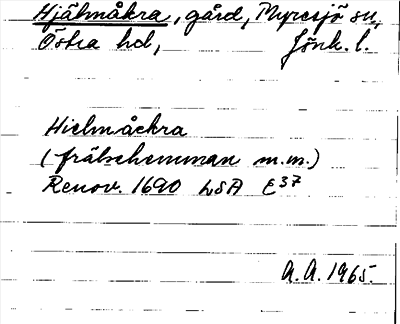 Hjälmåkra, gård, Myresjö sn,
Östra hd, Jönk. l.
Hielmåckra
(frälsehemman m.m.)
Renov. 1690 LSA E37
A.A. 1965.